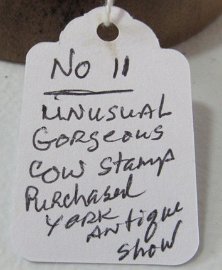 No 11
UNUSUAL
Gorgeous
Cow Stamp
Purchased
York
Antique
Show